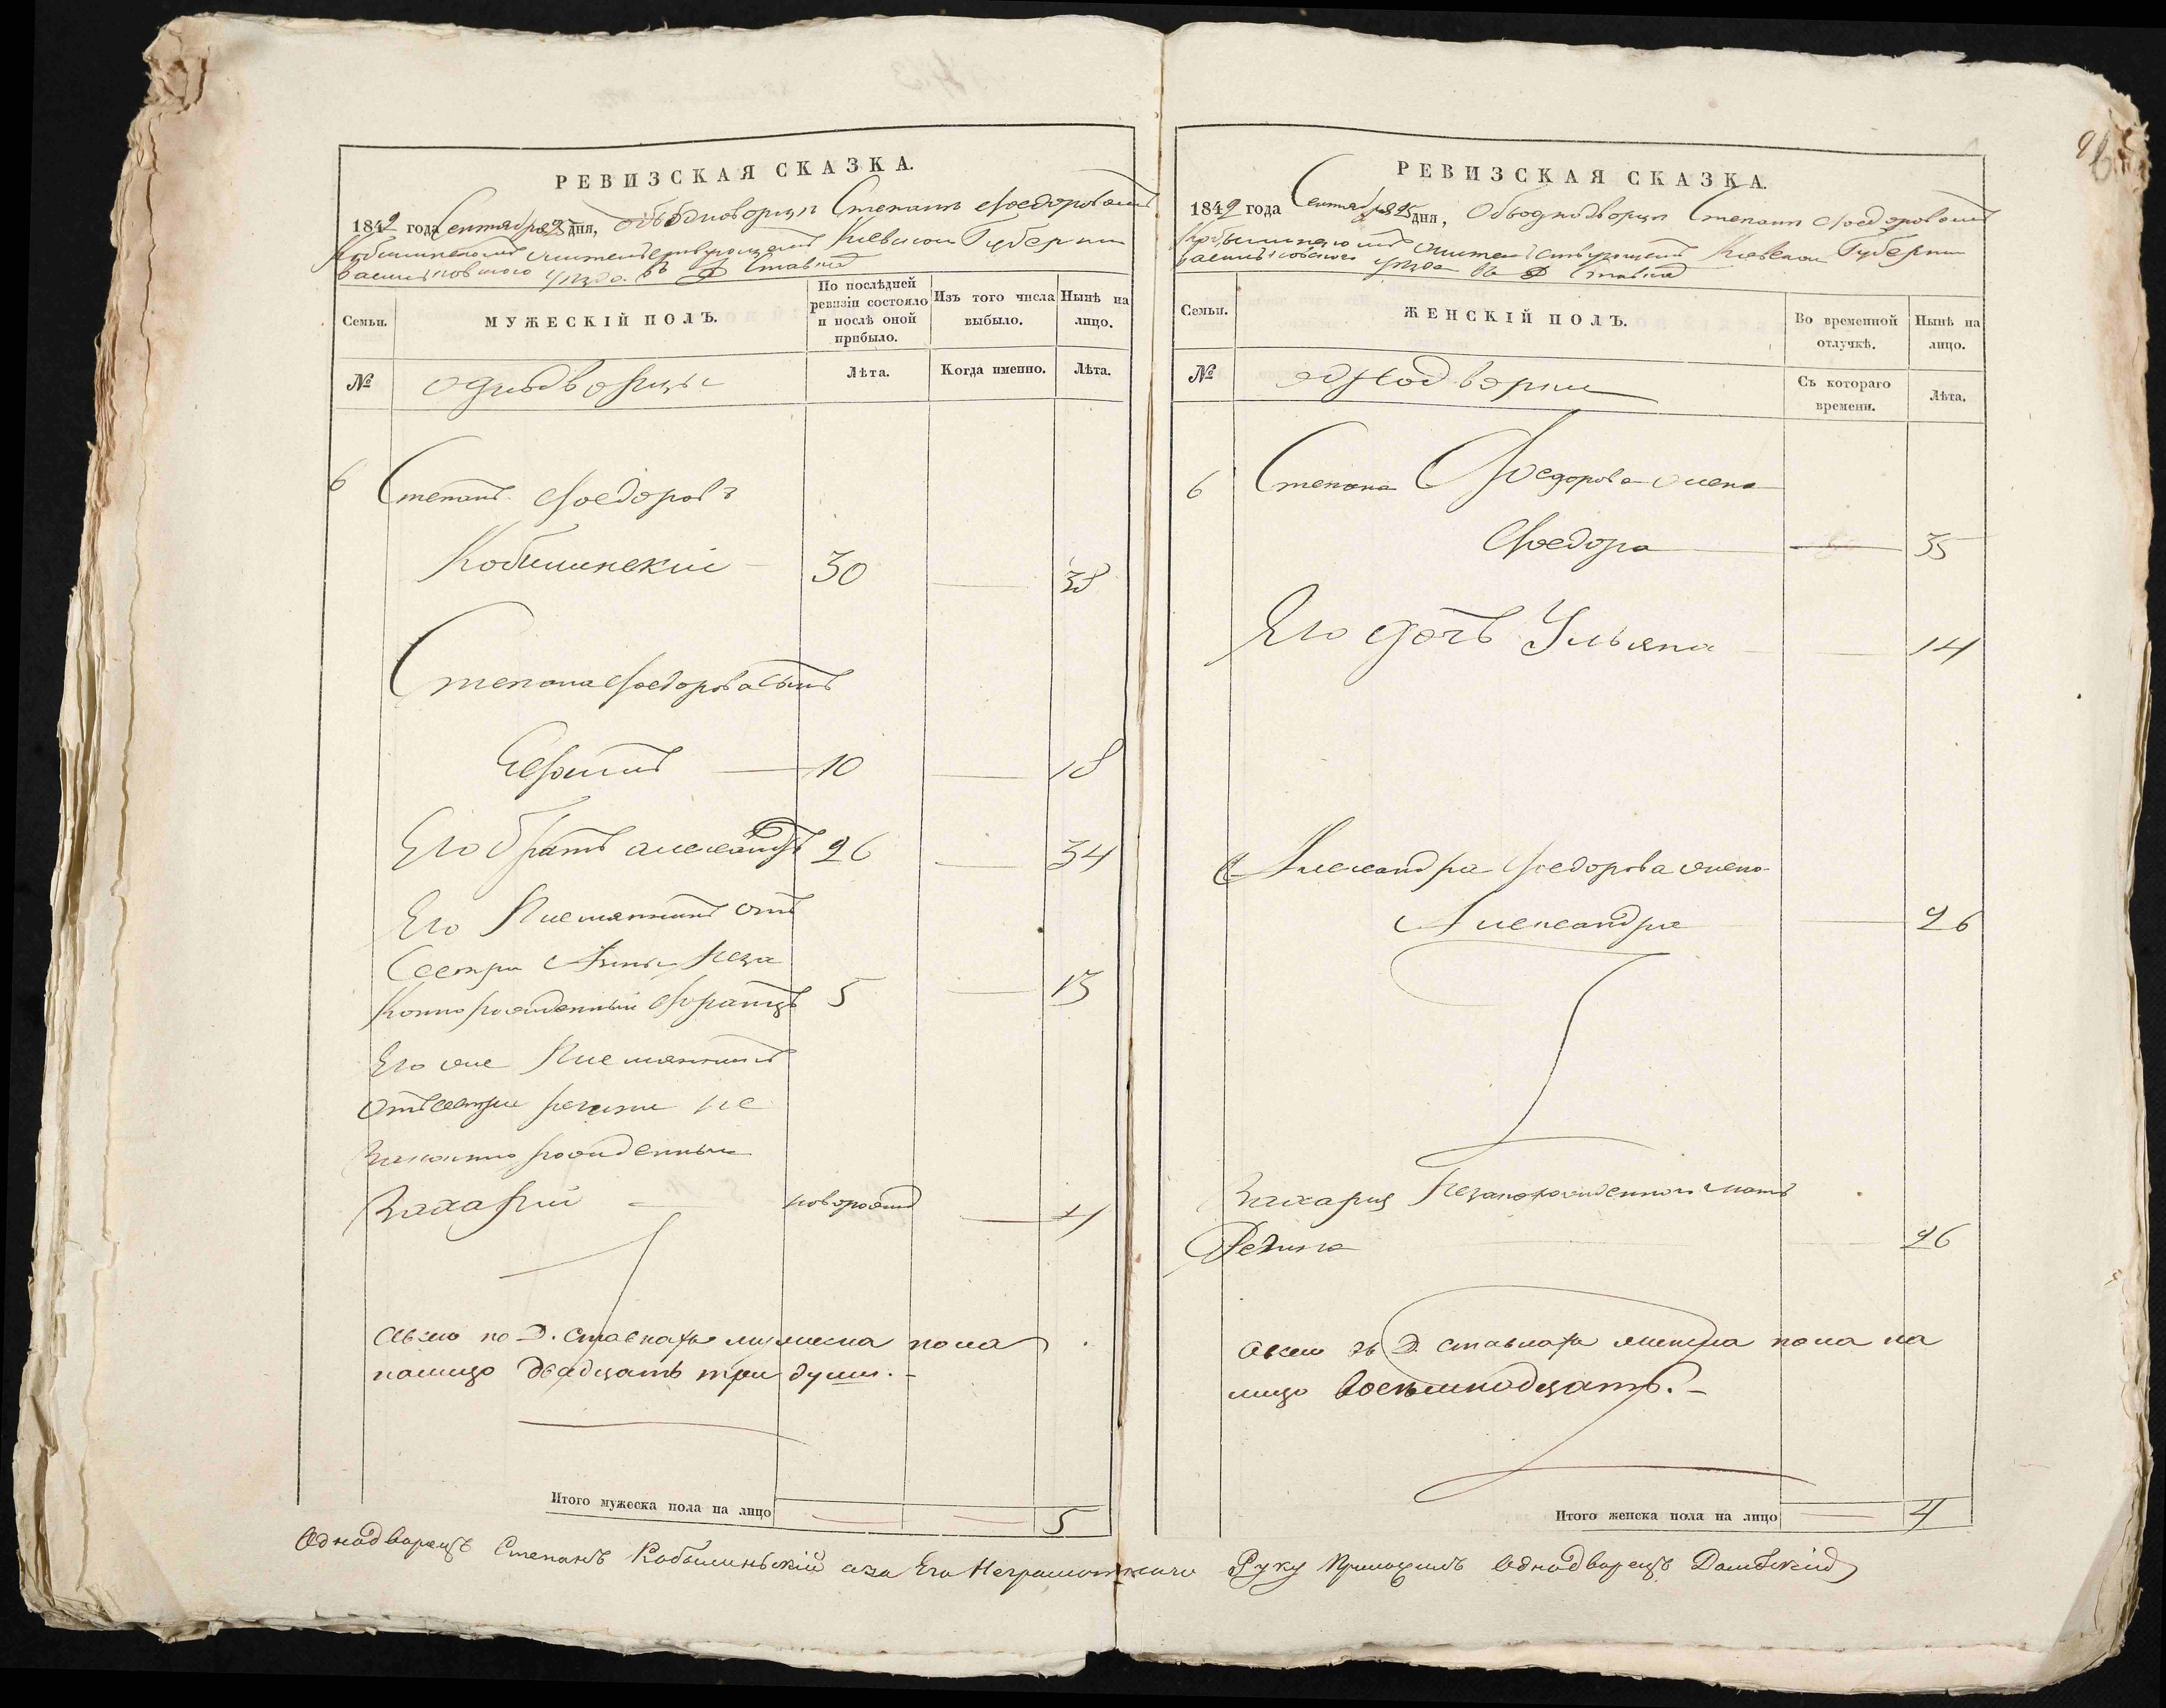 РЕВИЗСКАЯ СКАЗКА.
1842 года Сентября 25 дня, объ однодворцѣ Степанѣ Фоедоровомъ
Кобылинскомъ жительствующемъ Киевской Губернии
Васильковского уѣзда въ Д Ставка
Семьи.
МУЖЕСКІЙ ПОЛЪ.
По послѣдней ревизіи состояло и послѣ оной прибыло.
Изъ того числа выбыло.
Нынѣ на лицо.
№
однодворцы
Лѣта.
Когда именно.
Лѣта.
6 Степанъ Фоедоровъ
Кобилинский 30 38
Степана Фоедорова сынъ
10 18
Его братъ александръ 26 34
Его Племянникъ отъ
Сестри Анны неза
конно рожденный Францъ 5 13
Его же Племянникъ
отъ сестри регини не
законно рожденный
Захарий новорожд
Авсего по Д. Ставкахъ мужеска пола
налицо двадцать три души.
Итого мужеска пола на лицо 5
РЕВИЗСКАЯ СКАЗКА.
1842 года Сентября 25 дня, Объ однодворцѣ Степанѣ Фоедоровомъ
Кобылинскомъ жительствующемъ Киевской Губернии
Васильковского уѣзда въ Д Ставка
Семьи.
ЖЕНСКІЙ ПОЛЪ.
Во временной отлучкѣ.
Нынѣ на лицо.
№
однодворки
Съ котораго времени.
Лѣта.
6 Степана Фоедорова жена
Фоедора 35
Его дочь Ульяна 14
Александра Фоедорова жена
Александра 26
Захария Незаконорожденного мать
Регина 26
Авсего въ Д. Ставкахъ женска пола на
лицо восемнодцать.
Итого женска пола на лицо 4
Однодворецъ Степанъ Кобылиньский аза Его Неграмотного Руку Приложилъ Однодворецъ Домбский